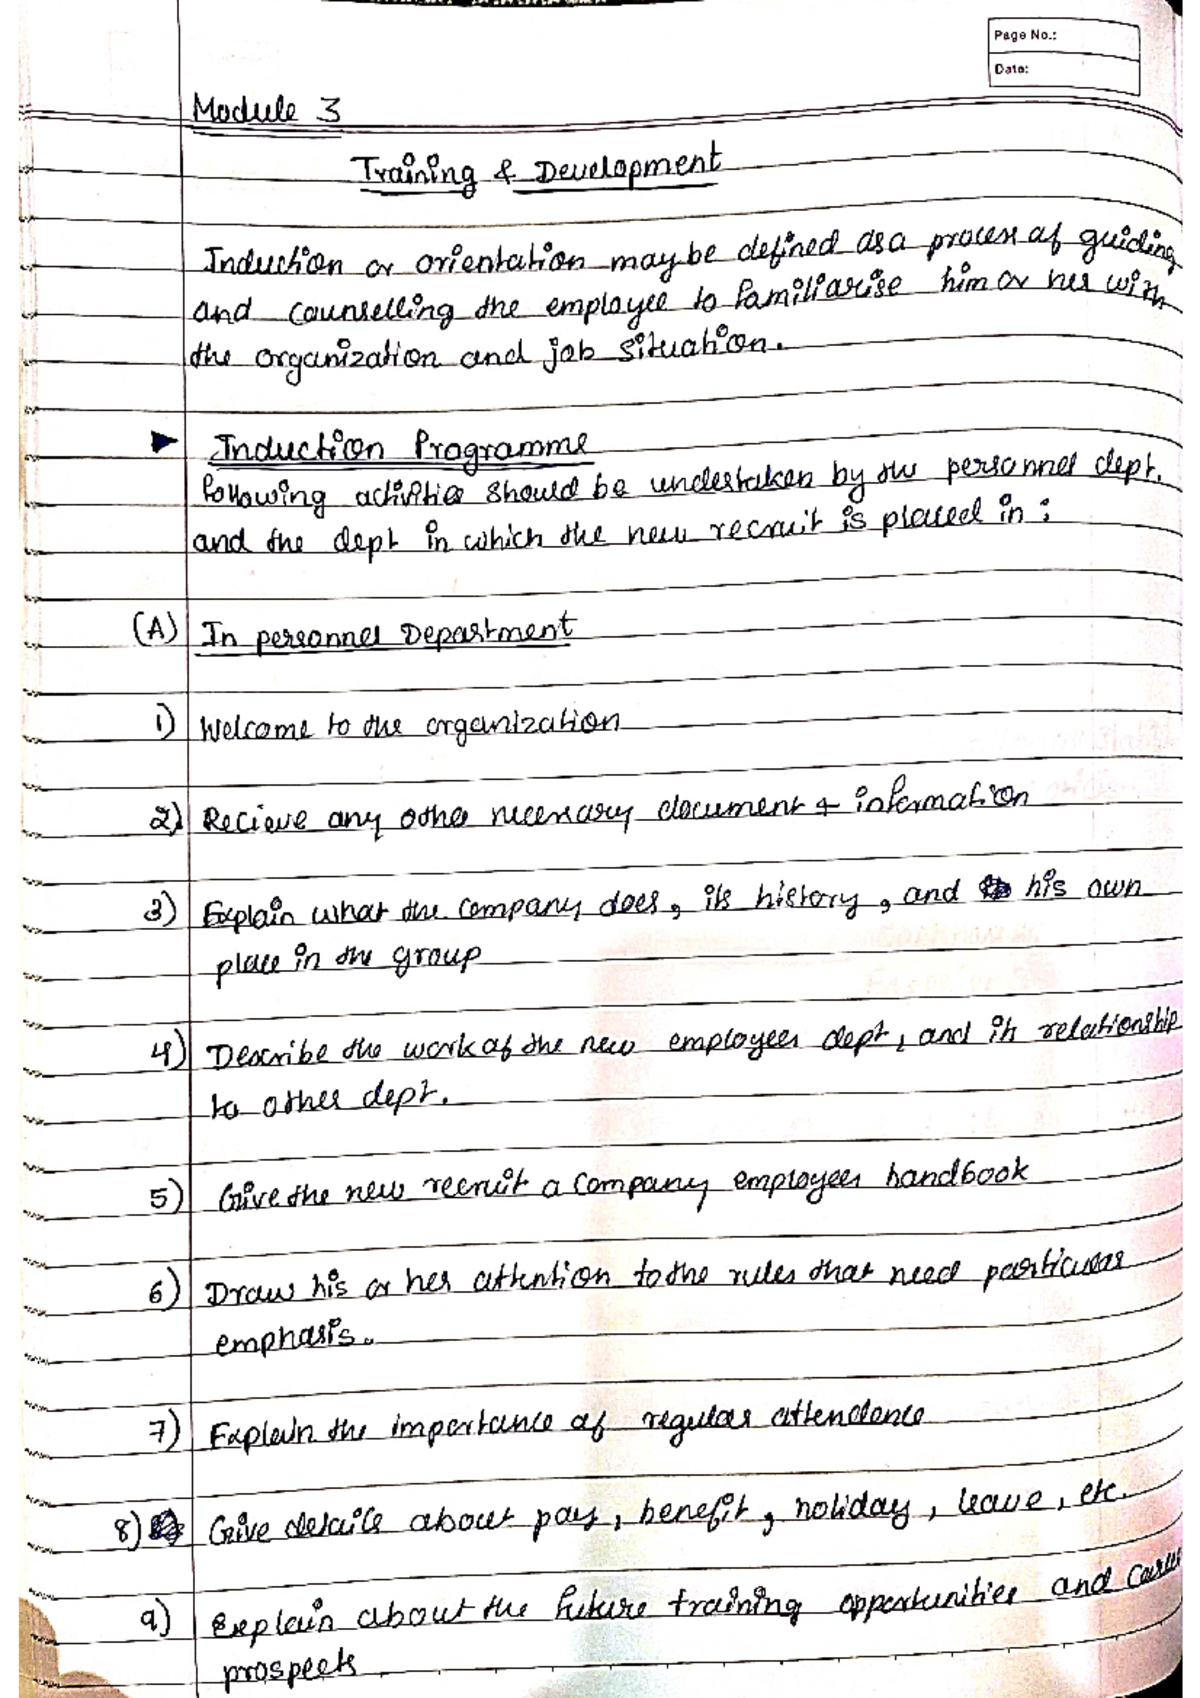 Page No.:
Date:
Module 3
Training & Development
Induction or orientation may be defined as a process of guiding
and counselling the employee to familiarise him or her with
the organization and job situation.
Induction Programme
following activities should be undertaken by the personnel dept.
and the dept in which the new recruit is placed in :
(A) In personnel Department
1) Welcome to the organization
2) Recieve any other necessary document & information
3) Explain what the company does, its history, and his own
place in the group
4) Describe the work of the new employees dept, and its relationship
to other dept.
5) Give the new recruit a company employees handbook
6) Draw his or her attention to the rules that need particular
emphasis.
7) Explain the importance of regular attendence
8) Give details about pay, benefit, holiday, leave, etc.
9) Explain about the future training opportunities and career
prospects